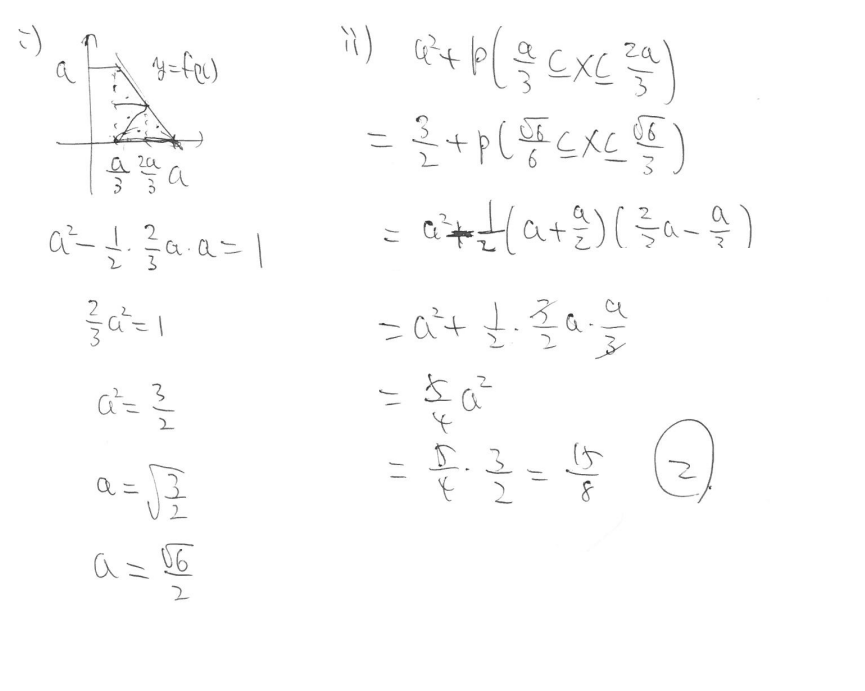 i)
a
y=f(x)
a/3 2a/3 a
a² - 1/2 · 2/3 a · a = 1
2/3 a² = 1
a² = 3/2
a = √(3/2)
a = √6/2
ii) a² + p(a/3 ≤ X ≤ 2a/3)
= 3/2 + p(√6/6 ≤ X ≤ √6/3)
= a² + 1/2 (a + a/2)(2/3 a - a/3)
= a² + 1/2 · 3/2 a · a/3
= 5/4 a²
= 5/4 · 3/2 = 15/8 ②